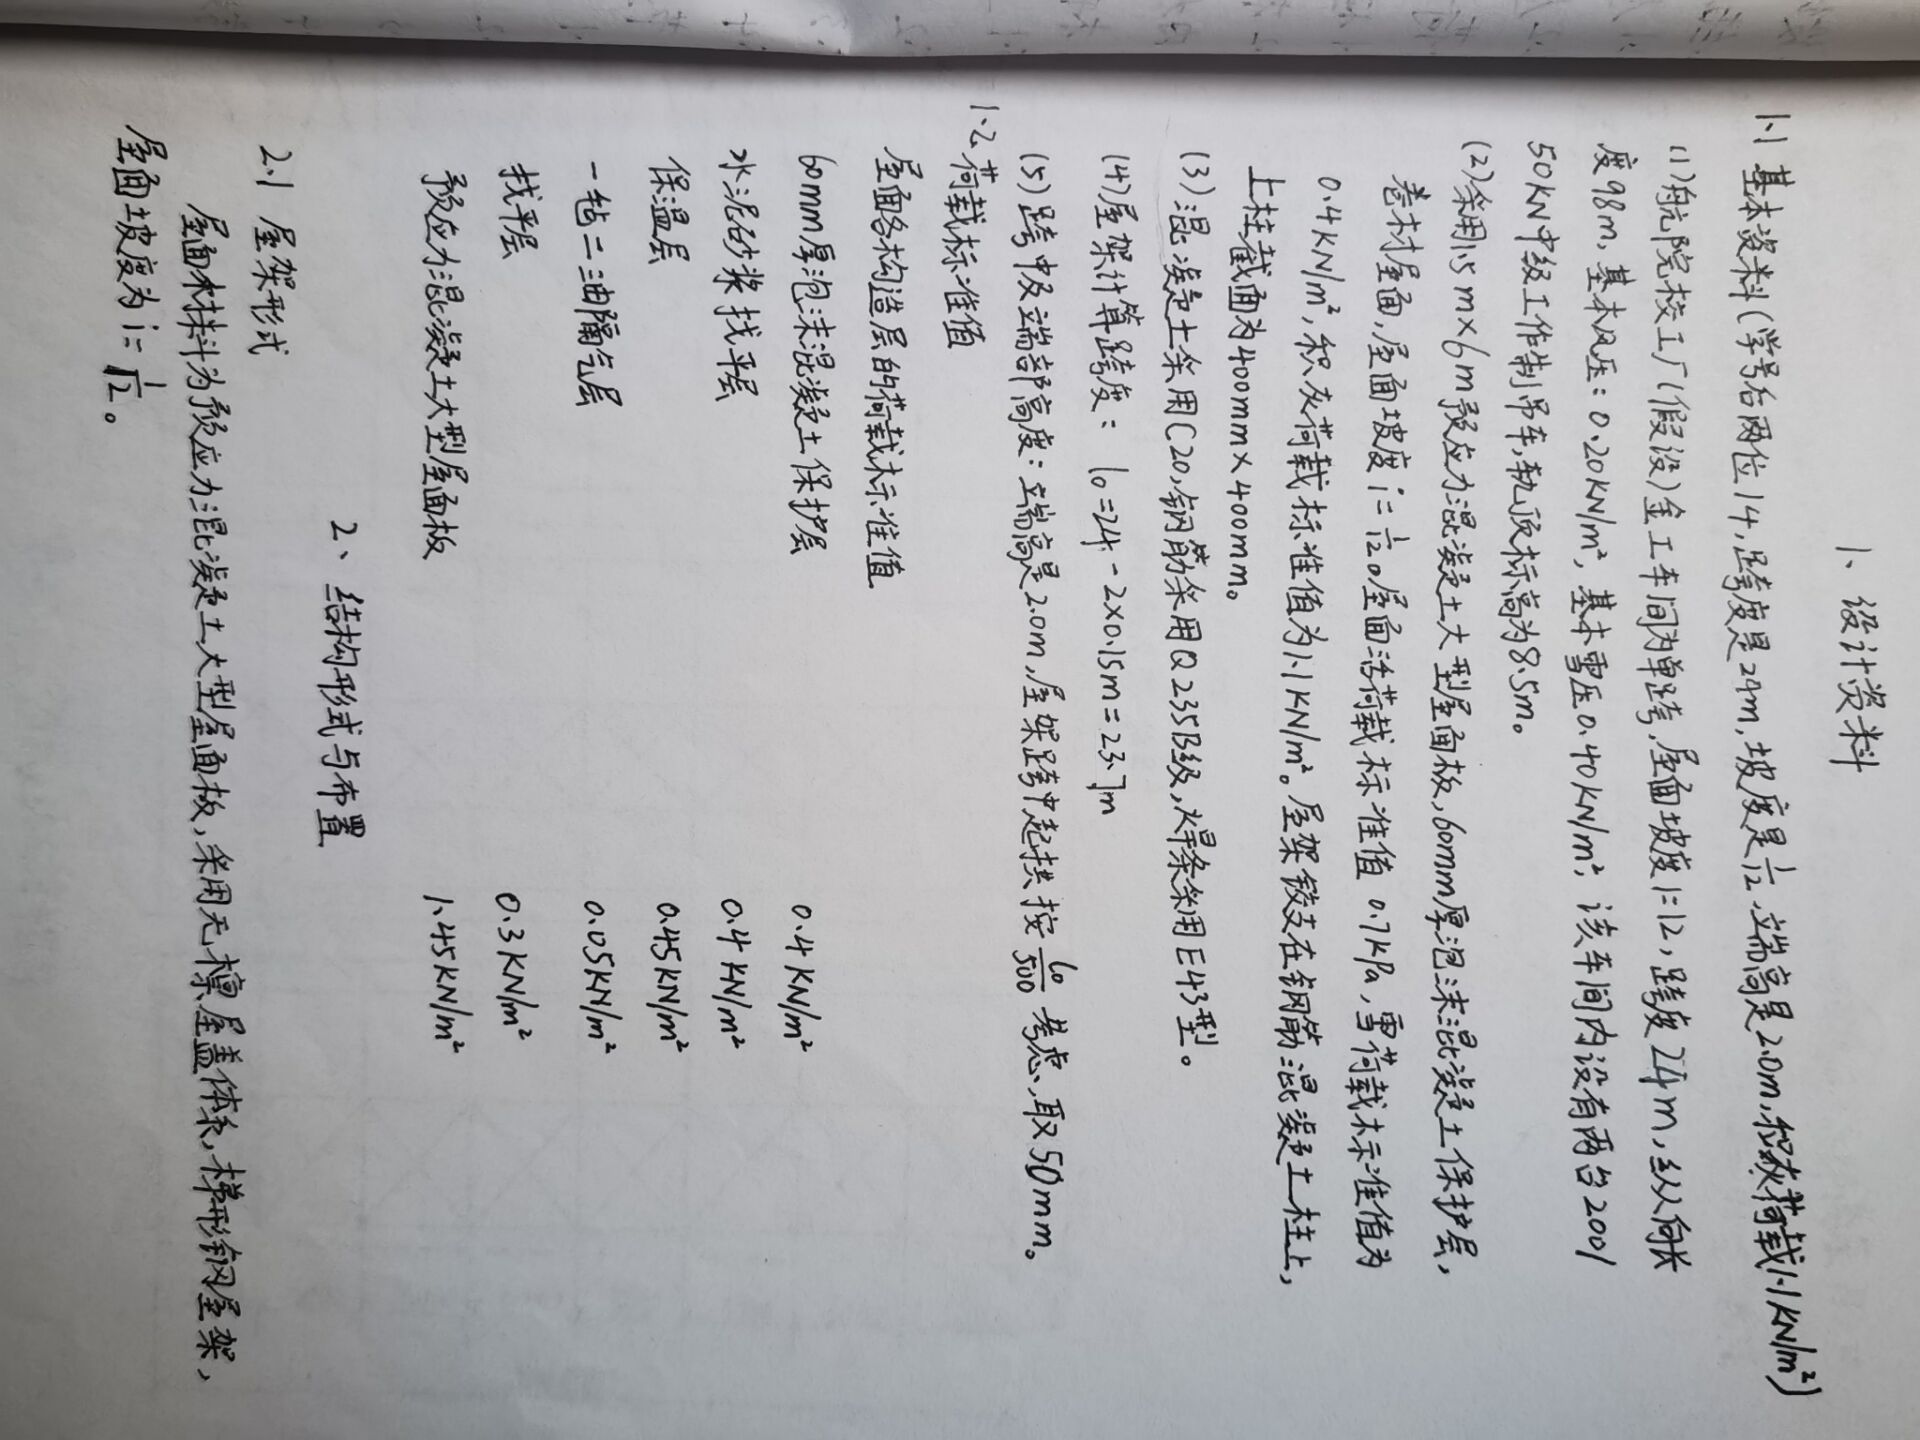 1、设计资料
1.1 基本资料(学号后两位14,跨度是24m,坡度是1/12,端高是2.0m,积灰荷载1.1KN/m²)
(1)航院校工厂(假设)金工车间为单跨,屋面坡度1:12,跨度24m,纵向长
度98m,基本风压:0.20KN/m²,基本雪压0.40KN/m²,该车间内设有两台200/
50KN中级工作制吊车,轨顶标高为8.5m。
(2)采用1.5m×6m预应力混凝土大型屋面板,60mm厚泡沫混凝土保护层,
卷材屋面,屋面坡度i=1/12。屋面活荷载标准值0.7kPa,雪荷载标准值为
0.4KN/m²,积灰荷载标准值为1.1KN/m²。屋架铰支在钢筋混凝土柱上,
上柱截面为400mm×400mm。
(3)混凝土采用C20,钢筋采用Q235B级,焊条采用E43型。
(4)屋架计算跨度: l₀=24-2×0.15m=23.7m
(5)跨中及端部高度:端高是2.0m,屋架跨中起拱按l₀/500考虑,取50mm。
1.2荷载标准值
屋面各构造层的荷载标准值
60mm厚泡沫混凝土保护层 0.4KN/m²
水泥砂浆找平层 0.4KN/m²
保温层 0.45KN/m²
一毡二油隔气层 0.05KN/m²
找平层 0.3KN/m²
预应力混凝土大型屋面板 1.45KN/m²
2、结构形式与布置
2.1 屋架形式
屋面材料为预应力混凝土大型屋面板,采用无檩屋盖体系,梯形钢屋架,
屋面坡度为i=1/12。